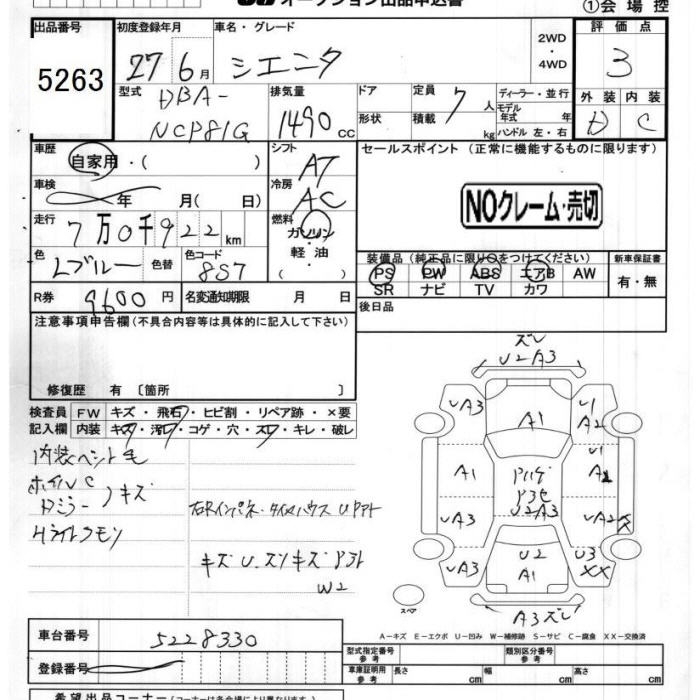 オークション出品申込書
①会場控
出品番号 5263
初度登録年月 27 6月
車名・グレード シエンタ
2WD・4WD
評価点 3
型式 DBA-
NCP81G
排気量 1490 CC
ドア
形状
定員 7人
積載 kg
ディーラー・並行
モデル年式 年
ハンドル 左・右
外装 D
内装 C
車歴 自家用・( )
シフト AT
セールスポイント (正常に機能するものに限ります)
車検 年 月(日)
冷房 AC
NOクレーム・売切
走行 7万0千922km
燃料 ガソリン
軽油
( )
色 Lブルー
色替
色コード 8S7
装備品(純正品に限り○をつけてください)
新車保証書
PS PW ABS エアB AW
SR ナビ TV カワ
有・無
R券 9600円
名変通知期限 月 日
後日品
注意事項申告欄(不具合内容等は具体的に記入して下さい)
修復歴 有 〔箇所 〕
検査員 FW キズ・飛石・ヒビ割・リペア跡・×要
記入欄 内装 キズ・汚レ・コゲ・穴・スレ・キレ・破レ
内装ペット毛
ホイルC
Dミラーキズ
Hライトクモリ
キズU.スリキズ
W2
ズレ
U2A3
UA3
A1
U1
A2
A1
U
A2
UA3
U2A3
UA2
U2
A1
UA3
U3
XX
A3ズレ
スペア
A-キズ E-エクボ U-凹み W-補修跡 S-サビ C-腐食 XX-交換済
車台番号 5228330
登録番号
型式指定番号 参考
類別区分番号 参考
車庫証明用 参考 長さ cm 幅 cm 高さ cm
希望出品コーナー(コーナーは各会場により異なります)